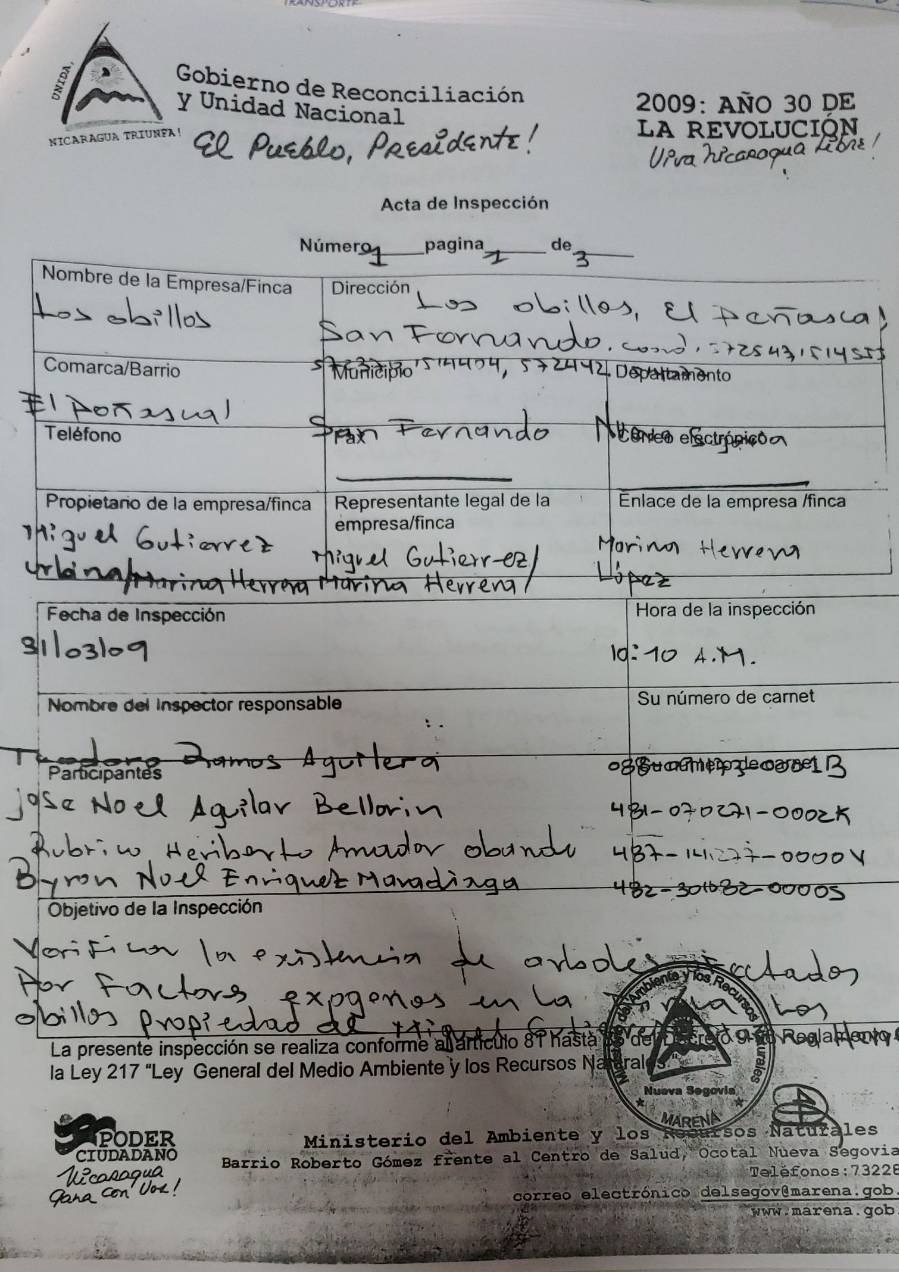 TRANSPORTE
UNIDA,
NICARAGUA TRIUNFA!
Gobierno de Reconciliación
y Unidad Nacional
El Pueblo, Presidente!
2009: AÑO 30 DE
LA REVOLUCIÓN
Viva Nicaragua Libre!
Acta de Inspección
Número 1 pagina 1 de 3
Nombre de la Empresa/Finca
Los obillos
Dirección
Los obillos, El Peñascal
San Fernando. coord. 572543, 514553
514404, 572442
Comarca/Barrio
El Peñascal
Municipio
San Fernando
Departamento
Nueva Segovia
Teléfono
Fax
Correo electrónico
Propietario de la empresa/finca
Miguel Gutierrez
Urbina/Marina Herrera
Representante legal de la
empresa/finca
Miguel Gutierrez/
Marina Herrera/
Enlace de la empresa /finca
Marina Herrera
López
Fecha de Inspección
31/03/09
Hora de la inspección
10:10 A.M.
Nombre del Inspector responsable
Teodoro Ramos Aguilera
Su número de carnet
Participantes
Su número de carnet
jose Noel Aguilar Bellorin
481-070271-0002K
Rubriw Heriberto Amador obando
487-141277-0000V
Byron Noel Enriquez Maradiaga
482-301682-0000S
Objetivo de la Inspección
Verificar la existencia de arboles afectados
Por Factores exogenos en la finca Los
obillos propiedad de Miguel
La presente inspección se realiza conforme al artículo 81 hasta del Decreto Reglamento
la Ley 217 "Ley General del Medio Ambiente y los Recursos Naturales"
Ministerio del Ambiente y los Recursos Naturales
Nueva Segovia
MARENA
PODER
CIUDADANO
Nicaragua
Gana con Vos!
Ministerio del Ambiente y los Recursos Naturales
Barrio Roberto Gómez frente al Centro de Salud, Ocotal Nueva Segovia
Teléfonos:73228
correo electrónico delsegov@marena.gob.
www.marena.gob.